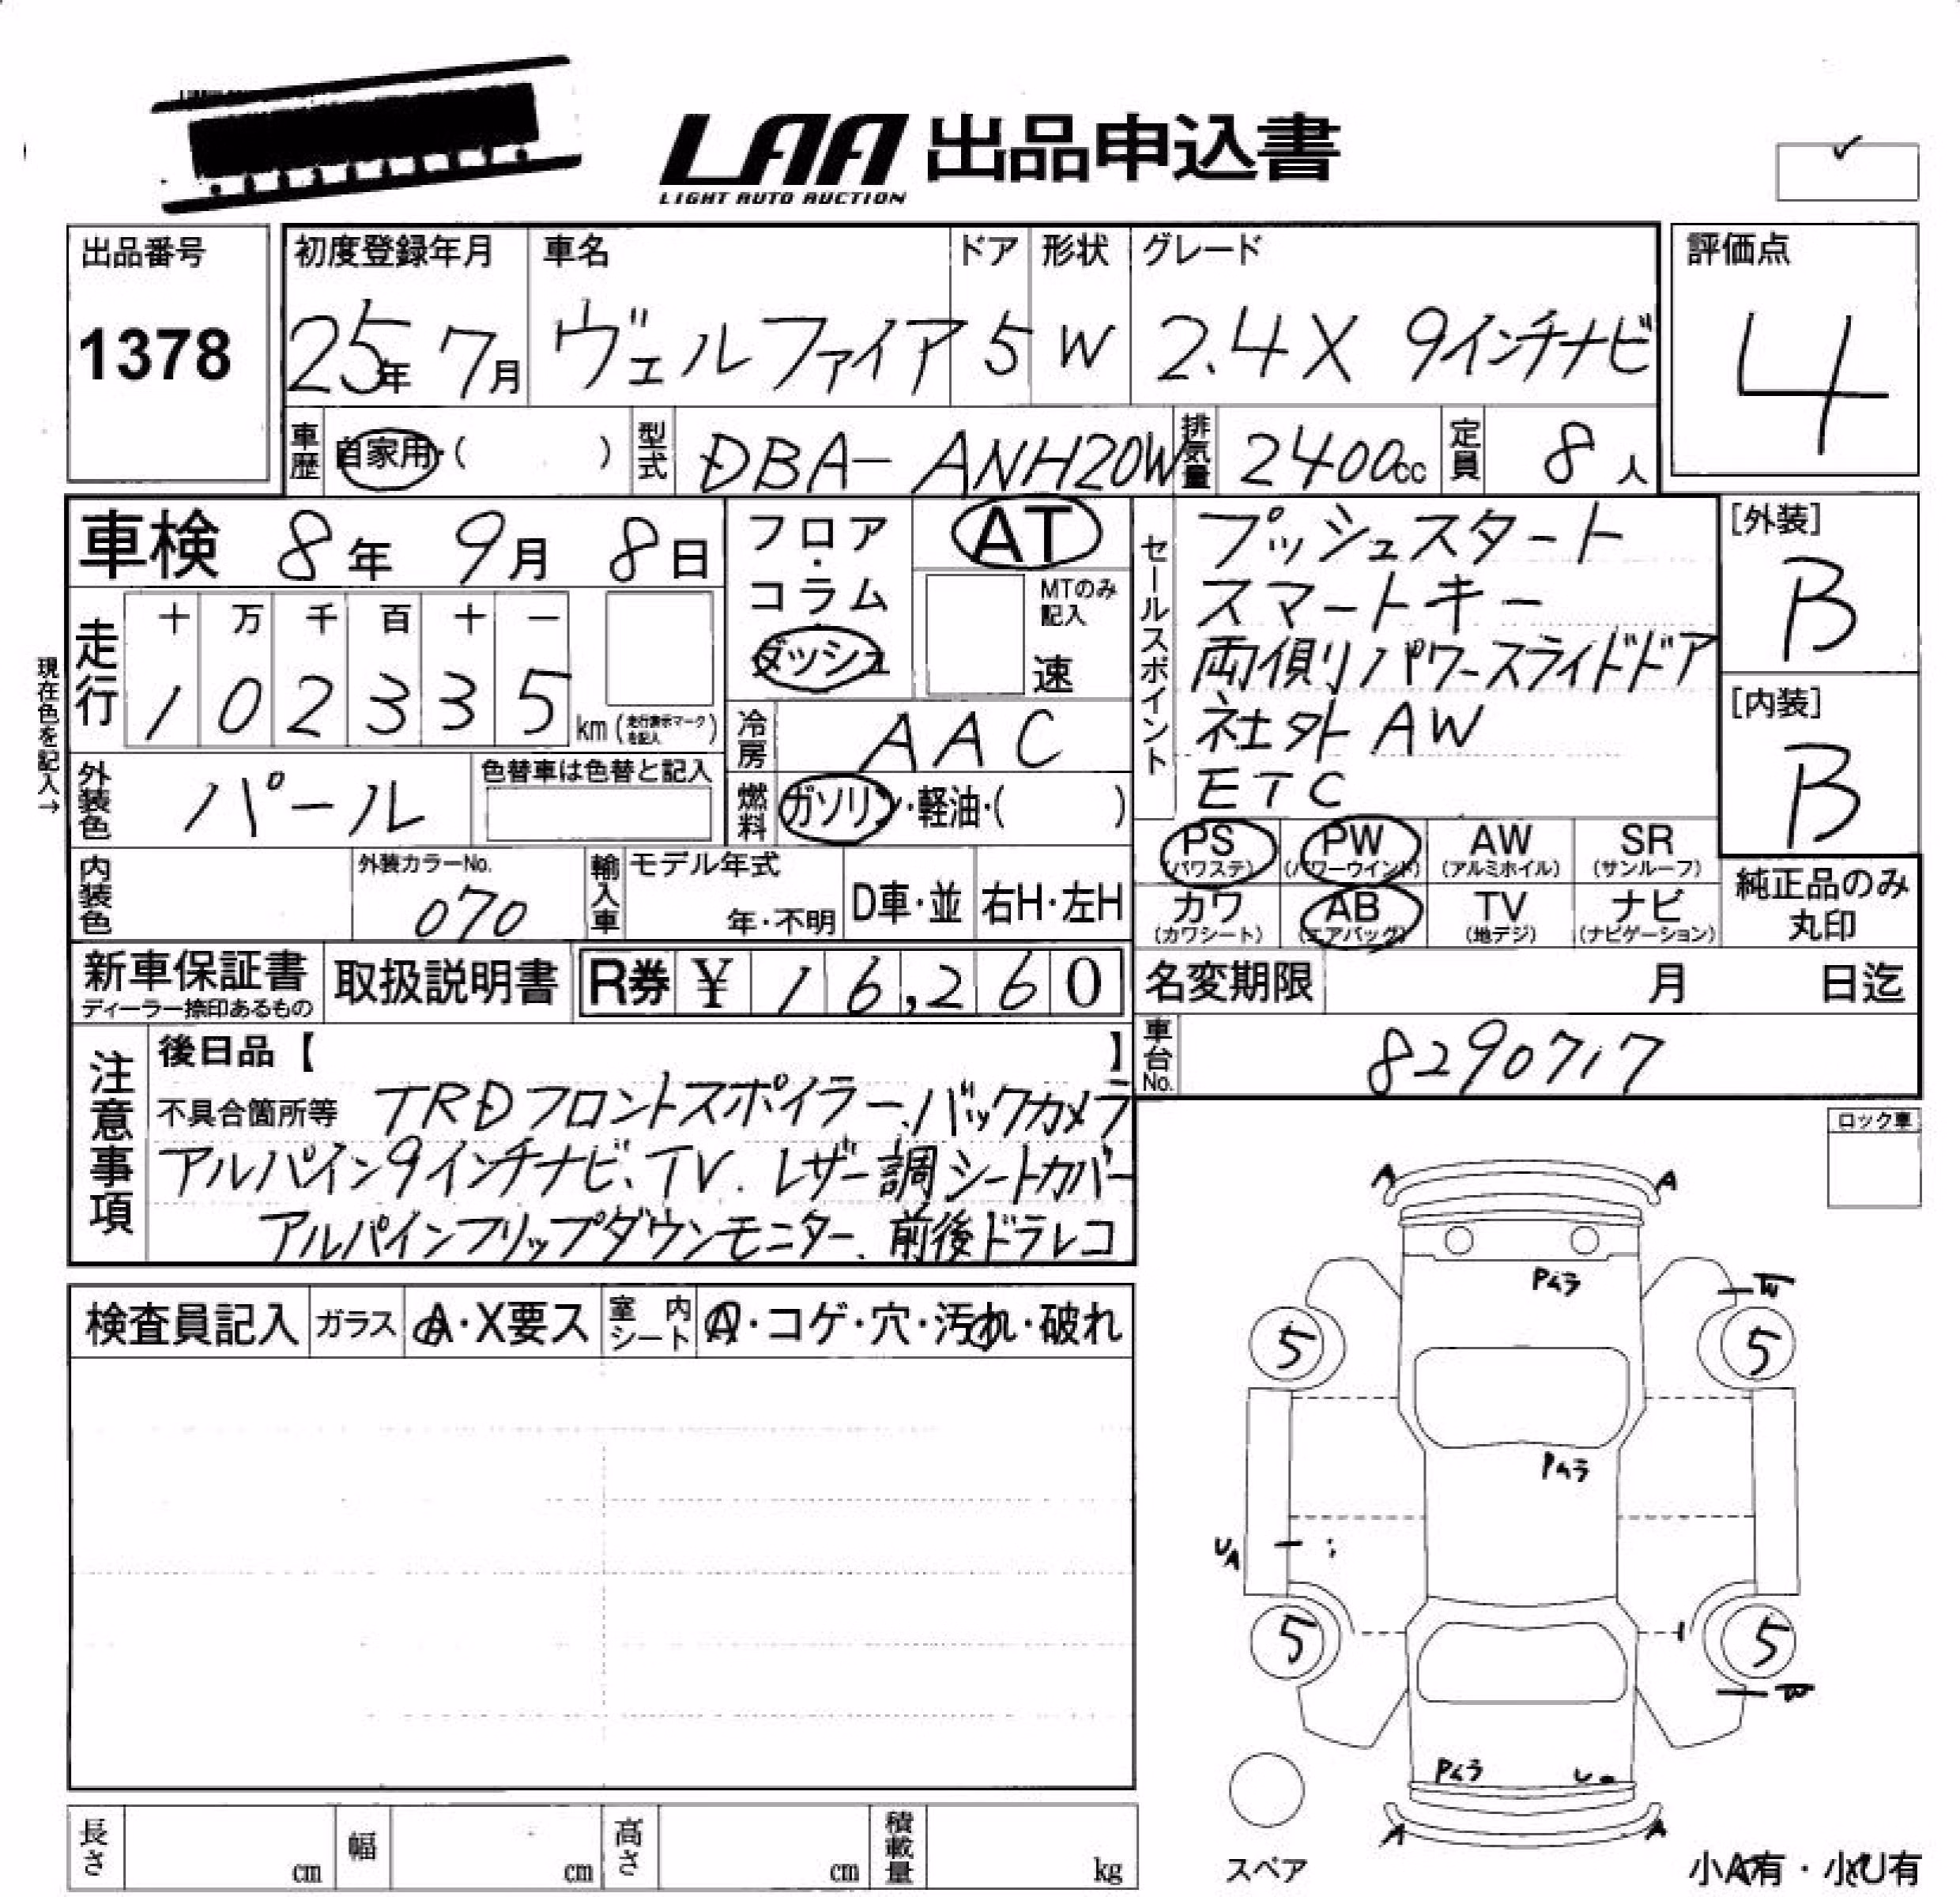 LAA 出品申込書
LIGHT AUTO AUCTION
出品番号
1378
初度登録年月
25年 7月
車名
ヴェルファイア
ドア
5
形状
W
グレード
2.4X 9インチナビ
評価点
4
車歴 自家用・( )
型式 DBA-ANH20W
排気量 2400cc
定員 8人
車検 8年 9月 8日
フロア・コラム ダッシュ
AT
MTのみ記入
速
走行
十 万 千 百 十 一
1 0 2 3 3 5 km (走行表示マークを記入)
現在色を記入→
外装色 パール
色替車は色替と記入
冷房 AAC
燃料 ガソリン・軽油・( )
内装色
外装カラーNo.
070
輸入車
モデル年式
年・不明
D車・並
右H・左H
セールスポイント
プッシュスタート
スマートキー
両側パワースライドドア
社外AW
ETC
[外装]
B
[内装]
B
PS (パワステ)
PW (パワーウインド)
AW (アルミホイル)
SR (サンルーフ)
カワ (カワシート)
AB (エアバッグ)
TV (地デジ)
ナビ (ナビゲーション)
純正品のみ丸印
新車保証書
ディーラー捺印あるもの
取扱説明書
R券 ¥ 16,260
名変期限 月 日迄
車台No. 8290717
注意事項
後日品【 】
不具合箇所等 TRDフロントスポイラー、バックカメラ
アルパイン9インチナビ、TV. レザー調シートカバー
アルパインフリップダウンモニター、前後ドラレコ
ロック車
検査員記入
ガラス
A・X要ス
室内シート
A・コゲ・穴・汚れ・破れ
A A
Pムラ
W
5 5
Pムラ
UA
5 5
W
Pムラ U
A A
スペア
小A有・小U有
長さ cm
幅 cm
高さ cm
積載量 kg